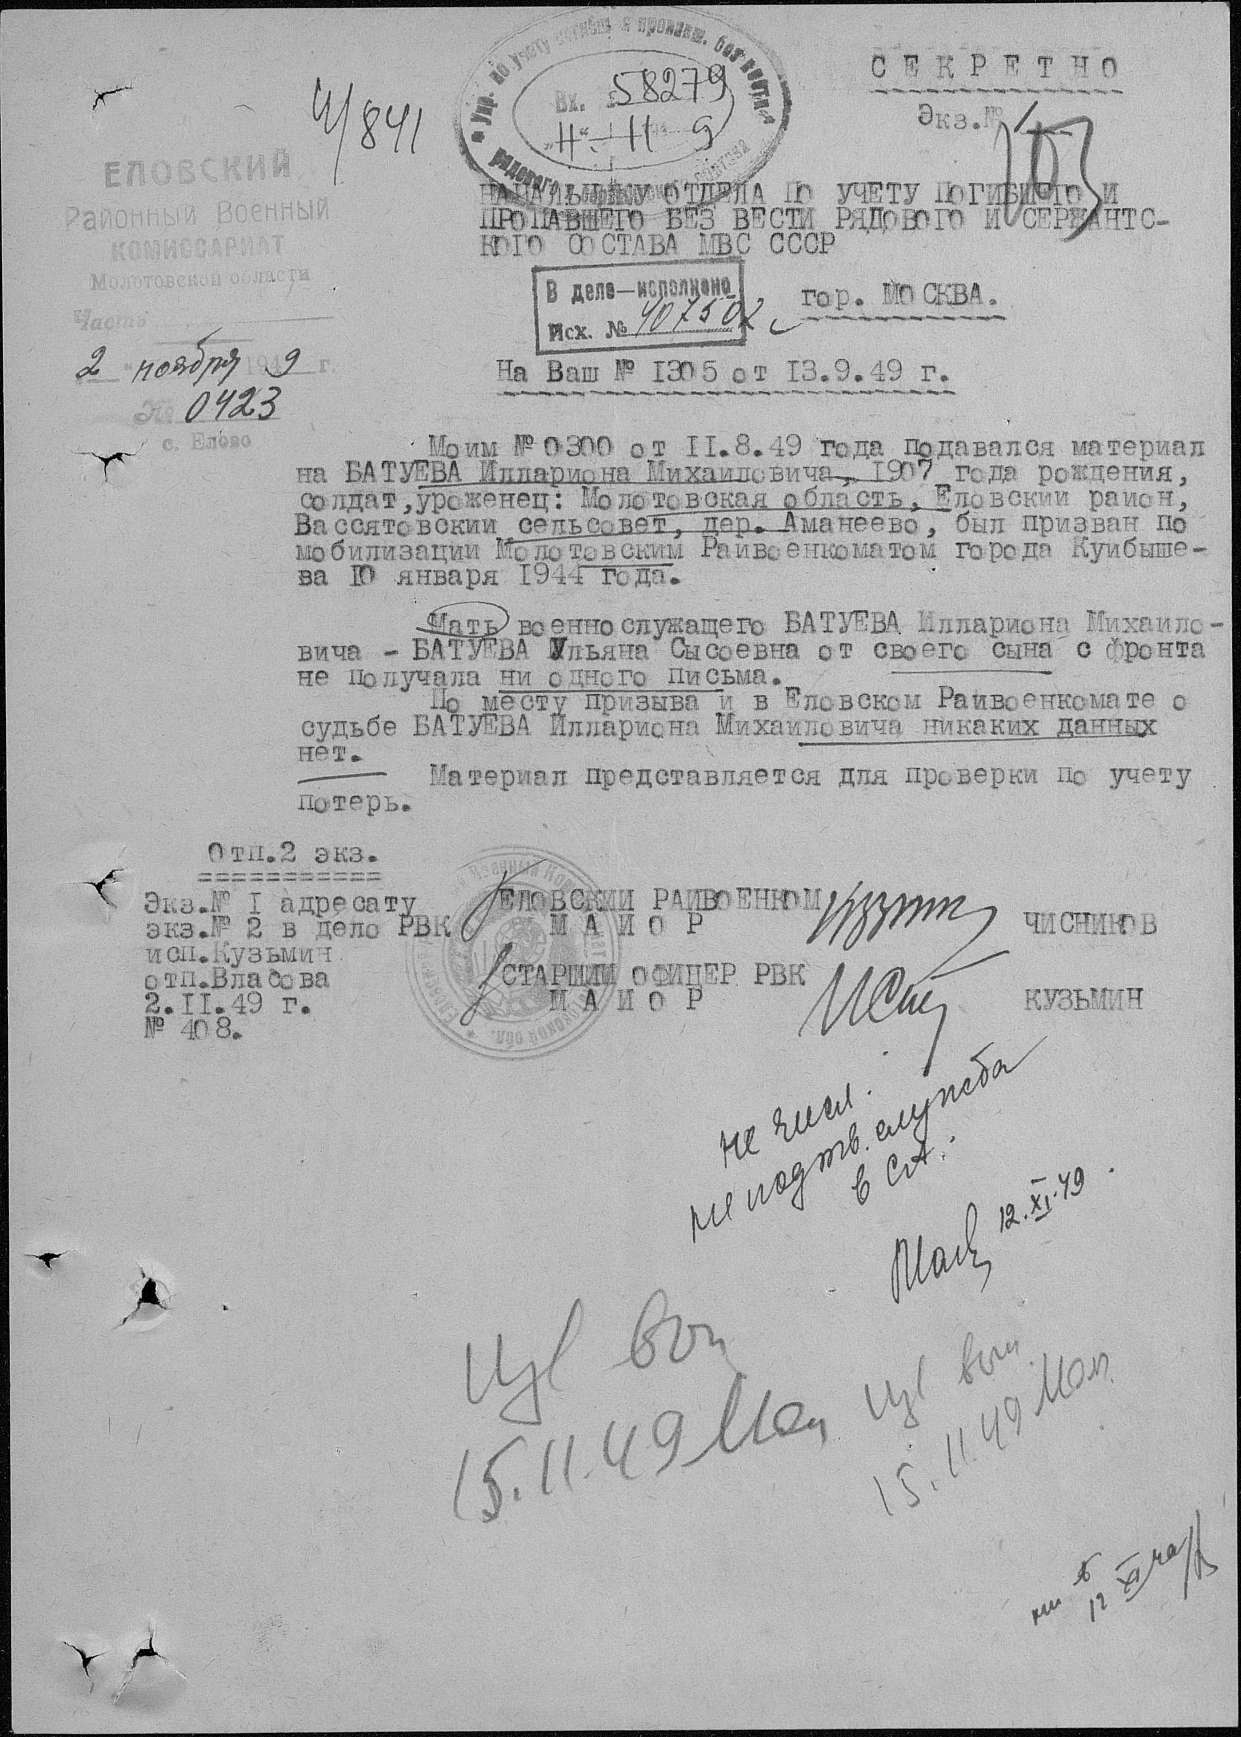 СЕКРЕТНО
Экз.№ 1
И/841
Упр. по учету погибш. и пропавш. без вести
рядового
Вх. 58279
"11" 11 9
103
ЕЛОВСКИЙ
Районный Военный
КОМИССАРИАТ
Молотовской области
Часть
2 ноября 1949 г.
№ 0423
с. Елово
НАЧАЛЬНИКУ ОТДЕЛА ПО УЧЕТУ ПОГИБШЕГО И
ПРОПАВШЕГО БЕЗ ВЕСТИ РЯДОВОГО И СЕРЖАНТС-
КОГО СОСТАВА МВС СССР
В деле—исполнено
Исх. № 407502
гор. МОСКВА.
На Ваш № 1305 от 13.9.49 г.
Моим № 0300 от II.8.49 года подавался материал
на БАТУЕВА Иллариона Михаиловича, 1907 года рождения,
солдат,уроженец: Молотовская область, Еловский район,
Вассятовский сельсовет, дер. Аманеево, был призван по
мобилизации Молотовским Райвоенкоматом города Куйбыше-
ва 10 января 1944 года.
Мать военнослужащего БАТУЕВА Иллариона Михаило-
вича - БАТУЕВА Ульяна Сысоевна от своего сына с фронта
не получала ни одного письма.
По месту призыва и в Еловском Райвоенкомате о
судьбе БАТУЕВА Иллариона Михаиловича никаких данных
нет.
Материал представляется для проверки по учету
потерь.
Отп.2 экз.
Экз.№ I адресату
экз.№ 2 в дело РВК
исп.Кузьмин
отп.Власова
2.II.49 г.
№ 408.
ЕЛОВСКИЙ РАЙВОЕНКОМ
МАЙОР ЧИСНИКОВ
СТАРШИЙ ОФИЦЕР РВК
МАЙОР КУЗЬМИН
не числ.
не подтв. служба
в СА.
12.XI.49
15.11.49
15.11.49
12 XI